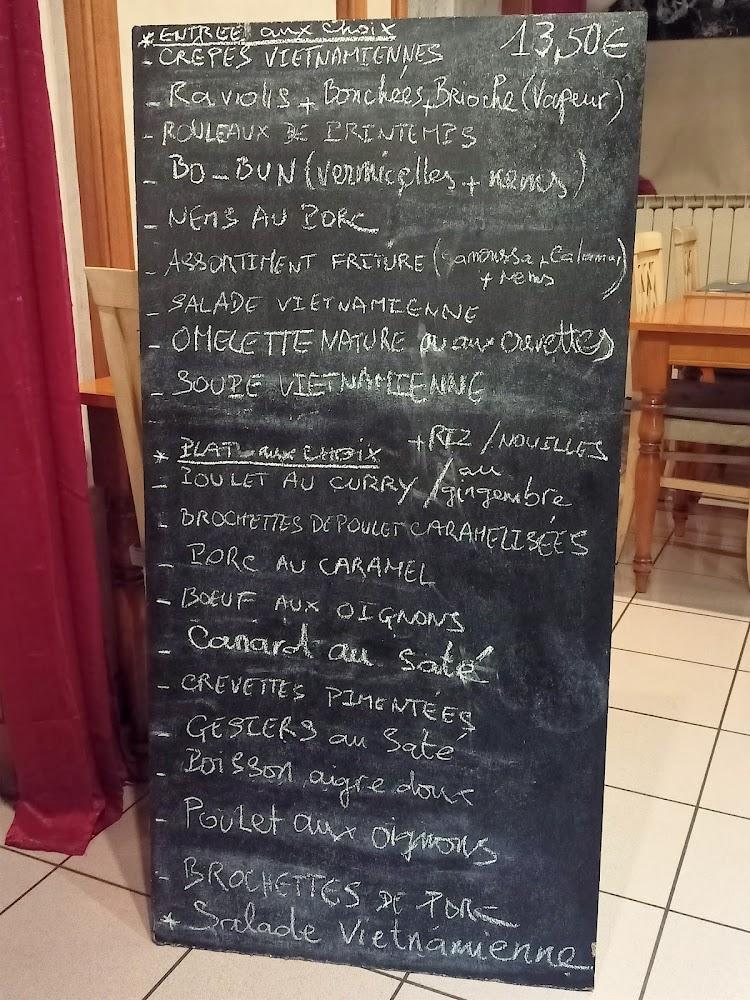 * ENTREE aux choix 13,50€
- CRÊPES VIETNAMIENNES
- Raviolis + Bouchées + Brioche (Vapeur)
- ROULEAUX DE PRINTEMPS
- BO-BUN (vermicelles + nems)
- NEMS AU PORC
- ASSORTIMENT FRITURE (samoussa + Calamar
+ Nems)
- SALADE VIETNAMIENNE
- OMELETTE NATURE ou aux crevettes
- SOUPE VIETNAMIENNE
* PLAT aux CHOIX + RIZ / NOUILLES
- POULET AU CURRY / au gingembre
- BROCHETTES DE POULET CARAMELISÉES
- PORC AU CARAMEL
- BOEUF AUX OIGNONS
- Canard au saté
- CREVETTES PIMENTÉES
- GESIERS au Saté
- Boisson aigre doux
- Poulet aux oignons
- BROCHETTES DE PORC
* Salade Vietnamienne